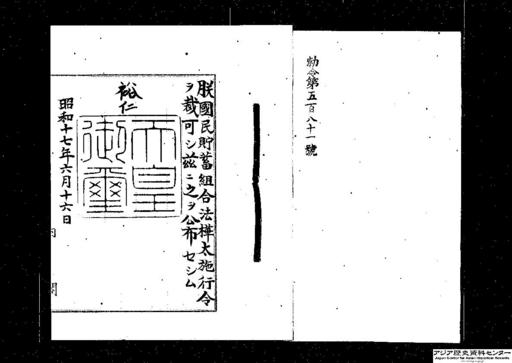 勅令第五百八十一號
朕國民貯蓄組合法樺太施行令
ヲ裁可シ茲ニ之ヲ公布セシム
裕仁
天皇御璽
昭和十七年六月十六日
内閣
アジア歴史資料センター
Japan Center for Asian Historical Records